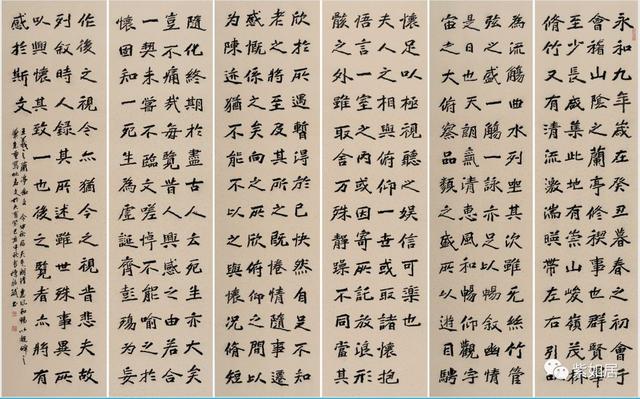 永和九年歲在癸丑暮春之初會于
會稽山陰之蘭亭修禊事也群賢畢
至少長咸集此地有崇山峻嶺茂林
脩竹又有清流激湍暎帶左右引以
為流觴曲水列坐其次雖無絲竹管
弦之盛一觴一詠亦足以暢敘幽情
是日也天朗氣清惠風和暢仰觀宇
宙之大俯察品類之盛所以遊目騁
懷足以極視聽之娛信可樂也
夫人之相與俯仰一世或取諸懷抱
悟言一室之內或因寄所託放浪形
骸之外雖取舍萬殊靜躁不同當其
欣於所遇暫得於己快然自足不知
老之將至及其所之既惓情隨事遷
感慨係之矣向之所欣俛仰之間以
為陳迹猶不能不以之興懷況脩短
隨化終期於盡古人云死生亦大矣
豈不痛哉每覽昔人興感之由若合
一契未嘗不臨文嗟悼不能喻之於
懷固知一死生為虛誕齊彭殤為妄
作後之視今亦猶今之視昔悲夫故
列敘時人錄其所述雖世殊事異所
以興懷其致一也後之覽者亦將有
感於斯文
王羲之蘭亭序
紫如居